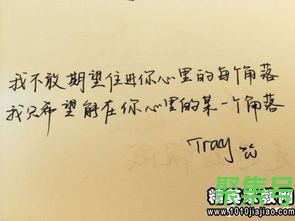 我不敢期望住进你心里的每个角落
我只希望能在你心里的某一个角落
Tracy
聚集号
精英家教网
www.1010jiajiao.com